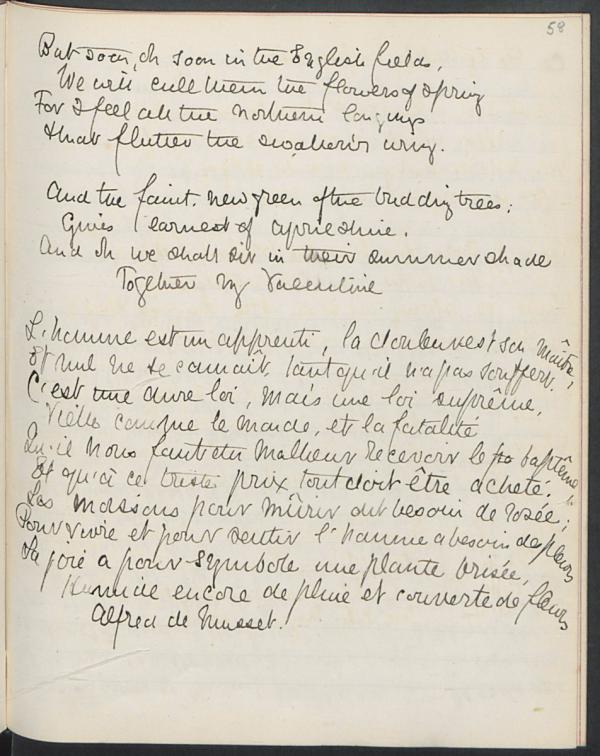 58
But soon, oh soon in the English fields,
We will cull them the flowers of spring
For I feel all the northern longings
that flutter the swallow's wing.
And the faint new green of the budding trees;
Gives earnest of april shine.
And oh we shall sit in their summer shade
Together my Valentine
L'homme est un apprenti, la douleur est son maître,
Et nul ne se connaît tant qu'il n'a pas souffert.
C'est une dure loi, mais une loi suprême,
Vieille comme le monde, et la fatalité
Qu'il nous faut du Malheur recevoir le baptême
Et qu'à ce triste prix tout doit être acheté.
Les moissons pour mûrir ont besoin de rosée;
Pour vivre et pour sentir l'homme a besoin de pleurs
La joie a pour symbole une plante brisée,
Humide encore de pluie et couverte de fleurs
Alfred de Musset.